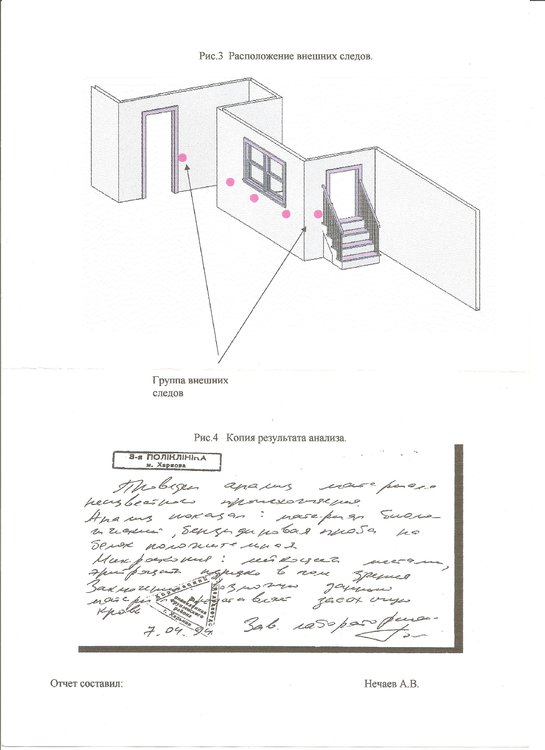 Рис.3 Расположение внешних следов.
Группа внешних
следов
Рис.4 Копия результата анализа.
8-я ПОЛІКЛІНІКА
м. Харкова
Проведен анализ материала
неизвестного происхождения.
Анализ показал: материал биоло
гический, бензидиновая проба на
белок положительная
Микроскопия: лейкоциты
эритроциты в поле зрения
возможно данный
засохшую
кровь
7.04.94 Зав. лабораторией
Отчет составил: Нечаев А.В.